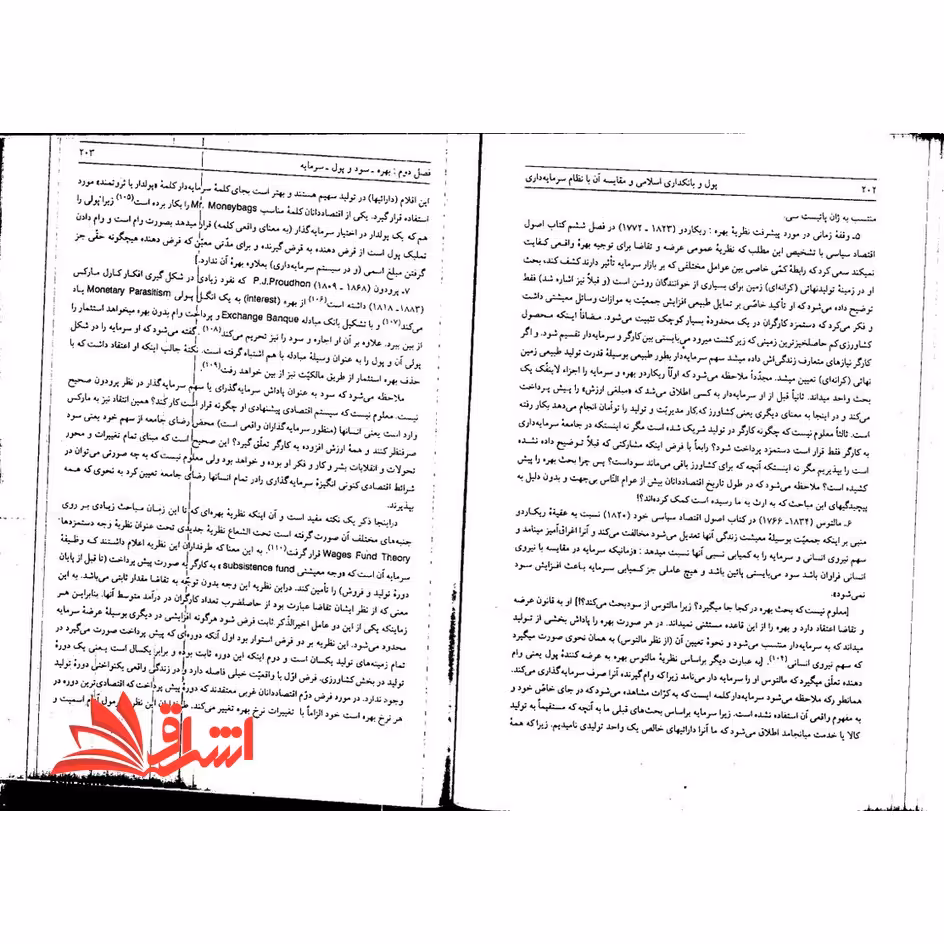 ۲۰۲
پول و بانکداری اسلامی و مقایسه آن با نظام سرمایه‌داری
منتسب به ژان باتیست سی.
۵ـ وقفهٔ زمانی در مورد پیشرفت نظریهٔ بهره : ریکاردو (۱۸۲۳ ـ ۱۷۷۲) در فصل ششم کتاب اصول
اقتصاد سیاسی با تشخیص این مطلب که نظریهٔ عمومی عرضه و تقاضا برای توجیه بهرهٔ واقعی کفایت
نمیکند سعی کرد که رابطهٔ کمّی خاصی بین عوامل مختلفی که بر بازار سرمایه تأثیر دارند کشف کند، بحث
او در زمینهٔ تولیدنهائی (کرانه‌ای) زمین برای بسیاری از خوانندگان روشن است (و قبلاً نیز اشاره شد) فقط
توضیح داده می‌شود که او تأکید خاصّی بر تمایل طبیعی افزایش جمعیّت به موازات وسائل معیشتی داشت
و فکر می‌کرد که دستمزد کارگران در یک محدودهٔ بسیار کوچک تثبیت می‌شود. مضافاً اینکه محصول
کشاورزی کم حاصلخیزترین زمینی که زیر کشت میرود می‌بایستی بین کارگر و سرمایه‌دار تقسیم شود. و اگر
کارگر نیازهای متعارف زندگی‌اش داده میشد سهم سرمایه‌دار بطور طبیعی بوسیلهٔ قدرت تولید طبیعی زمین
نهائی (کرانه‌ای) تعیین میشد. مجدّداً ملاحظه می‌شود که اولّا ریکاردو بهره و سرمایه را اجزاء لاینفّک یک
بحث واحد میداند. ثانیاً قبل از او سرمایه‌دار به کسی اطلاق می‌شد که «مبلغی ارزش» را پیش پرداخت
می‌کند و در اینجا به معنای دیگری یعنی کشاورز که کار مدیریّت و تولید را توأمان انجام می‌دهد بکار رفته
است. ثالثاً معلوم نیست که چگونه کارگر در تولید شریک شده است مگر نه اینستکه در جامعهٔ سرمایه‌داری
به کارگر فقط قرار است دستمزد پرداخت شود؟ رابعاً با فرض اینکه مشارکتی که قبلاً توضیح داده نشده
است را بپذیریم مگر نه اینستکه آنچه که برای کشاورز باقی می‌ماند سوداست؟ پس چرا بحث بهره را پیش
کشیده است؟ ملاحظه می‌شود که در طول تاریخ اقتصاددانان بیش از عوام النّاس بی‌جهت و بدون دلیل به
پیچیدگیهای این مباحث که به ارث به ما رسیده است کمک کرده‌اند؟!
۶ـ مالتوس (۱۸۳۴ـ ۱۷۶۶) در کتاب اصول اقتصاد سیاسی خود (۱۸۲۰) نسبت به عقیدهٔ ریکاردو
مبنی بر اینکه جمعیّت بوسیلهٔ معیشت زندگی آنها تعدیل می‌شود مخالفت می‌کند و آنرا اغراق‌آمیز مینامد و
سهم نیروی انسانی و سرمایه را به کمیابی نسبی آنها نسبت میدهد : «زمانیکه سرمایه در مقایسه با نیروی
انسانی فراوان باشد سود می‌بایستی پائین باشد و هیچ عاملی جز کمیابی سرمایه باعث افزایش سود
نمی‌شود».
[معلوم نیست که بحث بهره در کجا جا میگیرد؟ زیرا مالتوس از سودبحث می‌کند؟!] او به قانون عرضه
و تقاضا اعتقاد دارد و بهره را از این قاعده مستثنی نمیداند. در هر صورت بهره را پاداش بخشی از تولید
میداند که به سرمایه‌دار منتسب می‌شود و نحوهٔ تعیین آن (از نظر مالتوس) به همان نحوی صورت میگیرد
که سهم نیروی انسانی(۱۰۴). [به عبارت دیگر براساس نظریهٔ مالتوس بهره به عرضه کنندهٔ پول یعنی وام
دهنده تعلّق میگیرد که مالتوس او را سرمایه دار می‌نامد زیرا که وام گیرنده آنرا صرف سرمایه‌گذاری می‌کند.
همانطور که ملاحظه می‌شود سرمایه‌دار کلمه ایست که به کرّات مشاهده می‌شود که در جای خاصّ خود و
به مفهوم واقعی آن استفاده نشده است. زیرا سرمایه براساس بحث‌های قبلی ما به آنچه که مستقیماً به تولید
کالا یا خدمت میانجامد اطلاق می‌شود که ما آنرا دارائیهای خالص یک واحد تولیدی نامیدیم. زیرا که همهٔ
فصل دوم : بهره ـ سود و پول ـ سرمایه
۲۰۳
این اقلام (دارائیها) در تولید سهیم هستند و بهتر است بجای کلمهٔ سرمایه‌دار کلمهٔ «پولدار یا ثروتمند» مورد
استفاده قرار گیرد. یکی از اقتصاددانان کلمهٔ مناسب Mr. Moneybags را بکار برده است(۱۰۵) زیرا پولی را
هم که یک پولدار در اختیار سرمایه‌گذار (به معنای واقعی کلمه) قرار میدهد بصورت وام است و وام دادن
تملیک پول است از قرض دهنده به قرض گیرنده و برای مدّتی معیّن که قرض دهنده هیچگونه حقّی جز
گرفتن مبلغ اسمی (و در سیستم سرمایه‌داری) بعلاوه بهره آن ندارد.]
۷ـ پرودون (۱۸۶۸ ـ ۱۸۰۹) P.J.Proudhon که نفوذ زیادی در شکل گیری افکار کارل مارکس
(۱۸۸۳ـ ۱۸۱۸) داشته است(۱۰۶) از بهره (interest) به یک انگل پولی Monetary Parasitism یاد
می‌کند(۱۰۷) و با تشکیل بانک مبادله Exchange Banque و پرداخت وام بدون بهره میخواهد استثمار را
از بین ببرد. علاوه بر آن او اجاره و سود را نیز تحریم می‌کند(۱۰۸). گفته می‌شود که او سرمایه را در شکل
پولی آن و پول را به عنوان وسیلهٔ مبادله با هم اشتباه گرفته است. نکتهٔ جالب اینکه او اعتقاد داشت که با
حذف بهره استثمار از طریق مالکیّت نیز از بین خواهد رفت(۱۰۹).
ملاحظه می‌شود که سود به عنوان پاداش سرمایه‌گذاری یا سهم سرمایه‌گذار در نظر پرودون صحیح
نیست. معلوم نیست که سیستم اقتصادی پیشنهادی او چگونه قرار است کار کند؟ همین انتقاد نیز به مارکس
وارد است یعنی انسانها (منظور سرمایه‌گذاران واقعی است) محض رضای جامعه از سهم خود یعنی سود
صرفنظر کنند و همهٔ ارزش افزوده به کارگر تعلّق گیرد؟ این صحیح است که مبنای تمام تغییرات و محور
تحولات و انقلابات بشر و کار و فکر او بوده و خواهد بود ولی معلوم نیست که به چه صورتی می‌توان در
شرائط اقتصادی کنونی انگیزهٔ سرمایه‌گذاری رادر تمام انسانها رضای جامعه تعیین کرد به نحوی که همه
بپذیرند.
دراینجا ذکر یک نکته مفید است و آن اینکه نظریهٔ بهره‌ای که تا این زمان مباحث زیادی بر روی
جنبه‌های مختلف آن صورت گرفته است تحت الشعاع نظریهٔ جدیدی تحت عنوان نظریهٔ وجه دستمزدها-
Wages Fund Theory قرار گرفت(۱۱۰). به این معنا که طرفداران این نظریه اعلام داشتند که وظیفهٔ
سرمایه آن است که «وجه معیشتی subsistence fund» به کارگر به صورت پیش پرداخت (تا قبل از پایان
دورهٔ تولید و فروش) را تأمین کند. دراین نظریه این وجه بدون توجّه به تقاضا مقدار ثابتی می‌باشد. به این
معنی که از نظر ایشان تقاضا عبارت بود از حاصلضرب تعداد کارگران در درآمد متوسط آنها. بنابراین هر
زمانیکه یکی از این دو عامل اخیرالذّکر ثابت فرض شود هرگونه افزایشی در دیگری بوسیلهٔ عرضهٔ سرمایه
محدود می‌شود. این نظریه بر دو فرض استوار بود اول آنکه دوره‌ای که پیش پرداخت صورت می‌گیرد در
تمام زمینه‌های تولید یکسان است و دوم اینکه این دوره ثابت بوده و برابر یکسال است یعنی یک دورهٔ
تولید در بخش کشاورزی. فرض اوّل با واقعیّت خیلی فاصله دارد و در زندگی واقعی یکنواختی دورهٔ تولید
وجود ندارد. در مورد فرض دوّم اقتصاددانان غربی معتقدند که دورهٔ پیش پرداخت که اقتصادی‌ترین دوره در
هر نرخ بهره است خود الزاماً با تغییرات نرخ بهره تغییر می‌کند. طرفداران این نظر اسمیت و
اشراق